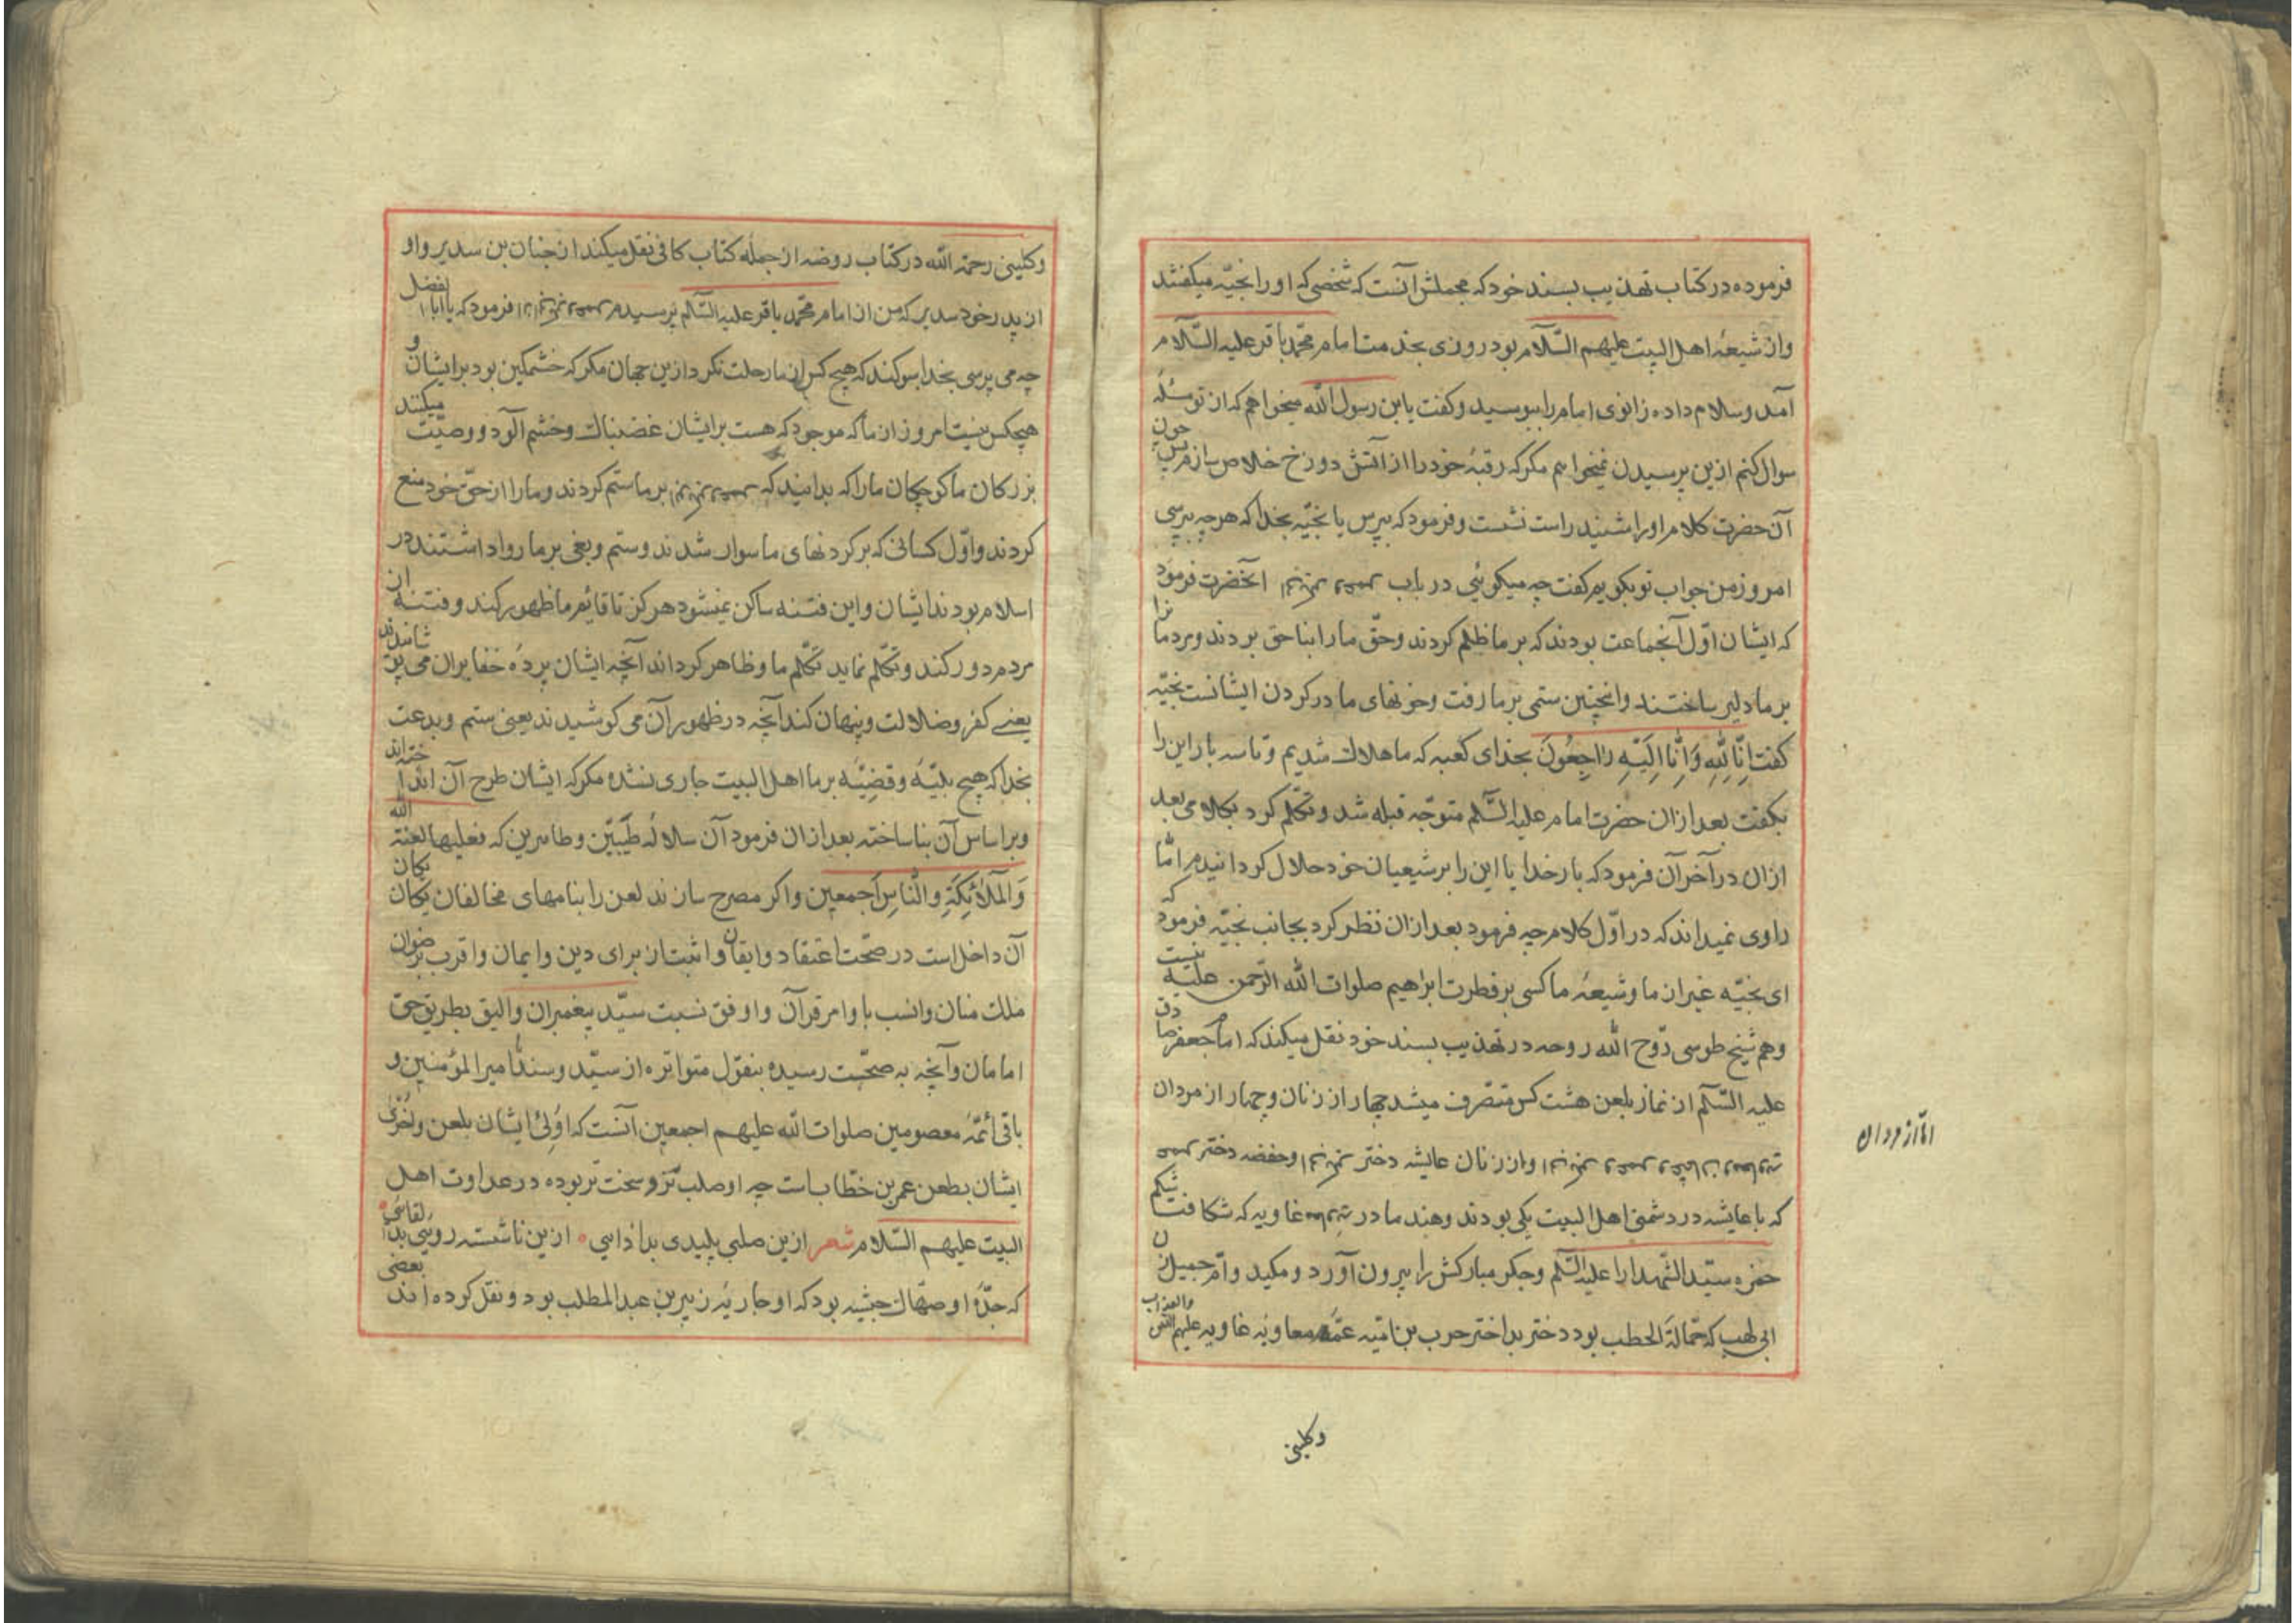 فرموده در کتاب تهذیب بسند خود که مجملش آنست که شخصی که او را نجیّه میکفتند
واز شیعهٔ اهل البیت علیهم السّلام بود روزی بخدمت امام محمّد باقر علیه السّلام
آمد وسلام داده زانوی امام را ببوسید وکفت یابن رسول الله میخواهم که از تو مسئلهٔ
سوال کنم ازین پرسیدن نمیخواهم مکر که رقبهٔ خود را از آتش دوزخ خلاص سازم پس چون
آن حضرت کلام او را شنید راست نشست و فرمود که بپرس یا نجیّه بخدا که هرچه بپرسی
امروز من جواب تو بکویم کفت چه میکوئی در باب آنحضرت فرمود
که ایشان اوّل آنجماعت بودند که بر ما ظلم کردند وحقّ ما را بناحق بردند ومردمانرا
بر ما دلیر ساختند وانچنین ستمی بر ما رفت وخونهای ما در کردن ایشانست نجیّه
کفت اِنّا لِلّهِ وَاِنّا اِلَیْهِ رَاجِعُونَ بخدای کعبه که ما هلاک شدیم وتا سه بار این را
بکفت بعد ازان حضرت امام علیه السّلم متوجّه قبله شد وتکلّم کرد بکلامی بعد
ازان در آخر آن فرمود که بار خدایا این را بر شیعیان خود حلال کردانیدم امّا
راوی نمیداند که در اوّل کلام چه فرمود بعد ازان نظر کرد بجانب نجیّه فرمود که
ای نجیّه غیر از ما وشیعهٔ ما کسی بر فطرت ابراهیم صلوات الله الرّحمن علیه نیست
وهم شیخ طوسی روّح الله روحه در تهذیب بسند خود نقل میکند که امام جعفر صادق
علیه السّلم از نماز بلعن هشت کس متصرف میشد چهار از زنان وچهار از مردان
امّا از مردان
واز زنان عایشه دختر وحفصه دختر
که با عایشه در دشمنی اهل البیت یکی بودند وهند مادر غاویه که شکافت شکم
حمزه سیّد الشّهدا را علیه السّلم وجکر مبارکش را بیرون آورد ومکید وامّ جمیل زن
ابی لهب که حمّالة الحطب بود دختر بد اختر حرب بن امیّه عمّهٔ معاویهٔ غاویه علیهم
وکلینی
وکلینی رحمة الله در کتاب روضه از جمله کتاب کافی نقل میکند از حنان بن سدیر واو
از پدر خود سدیر که من از امام محمّد باقر علیه السّلم پرسیدم فرمود که یا ابا الفضل
چه می پرسی بخدا سوکند که هیچ کس از ما رحلت نکرد ازین جهان مکر که خشمکین بود بر ایشان و
هیچکس نیست امروز از ما که موجود که هست بر ایشان غضبناک وخشم آلود ووصیّت میکنند
بزرکان ما کوچکان ما را که بدانید که بر ما ستم کردند وما را از حقّ خود منع
کردند واوّل کسانی که بر کردنهای ما سوار شدند وستم وبغی بر ما روا داشتند در
اسلام بودند ایشان واین فتنه ساکن نمیشود هرکز تا قائم ما ظهور کند وفتنه از
مردم دور کند وتکلّم نماید تکلّم ما وظاهر کرداند آنچه ایشان پردهٔ خفا بران می پوشانیدند
یعنے کفر وضلالت وپنهان کند آنچه در ظهور آن می کوشیدند یعنی ستم وبدعت
بخدا که هیچ بلیّهٔ وقضیّهٔ بر ما اهل البیت جاری نشده مکر که ایشان طرح آن انداخته اند
وبر اساس آن بنا ساخته بعد ازان فرمود آن سلالهٔ طیّبین وطاهرین که فعلیها لعنة الله
وَالمَلائِکَةِ والنّاسِ اَجمعین واکر مصرح سازند لعن را بنامهای مخالفان یکان یکان
آن داخل است در صحّت اعتقاد وایقان واثبت از برای دین وایمان واقرب برضوان
ملک منان وانسب باوامر قرآن واوفق نسبت سیّد پیغمبران والیق بطریق حق
امامان وآنچه به صحّت رسیده بنقول متواتره از سیّد وسند ما امیر المؤمنین و
باقی ائمّهٔ معصومین صلوات الله علیهم اجمعین آنست که اَولی ایشان بلعن واَخری
ایشان بطعن عمر بن خطّاب است چه او صلب تر وسخت تر بوده در عداوت اهل
البیت علیهم السّلام شعر ازین صلبی پلیدی بد اذایی ازین ناشسته رویی بد لقایی
که جدّهٔ او صهّاک حبشیه بود که او جاریهٔ زبیر بن عبد المطلب بود ونقل کرده اند بعضی